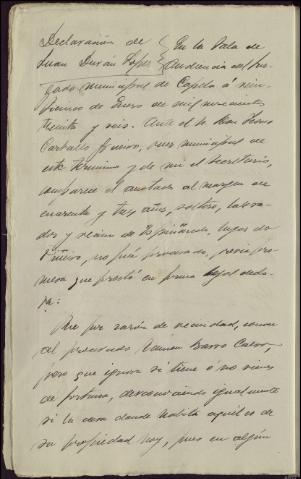 Declaración de
Juan Durán López
En la Sala de
Audiencia del Juz-
gado municipal de Capela á vein-
de Enero de mil novecientos
treinta y seis. Ante el Sr Don
Carballo Juez municipal de
este término y de mi el Secretario,
comparece el anotado al margen de
cuarenta y tres años, soltero, labra-
dor y vecino de Espiñaredo, lugar de
no fué procesado, previa pro-
mesa que prestó en forma legal decla-
ra:
Que por razón de vecindad, conoce
al procesado Ramon Barro
pero que ignora si tiene ó no vienes
de fortuna, desconociendo igualmente
si la casa donde habita aquél es de
su propiedad hoy, pues en algún